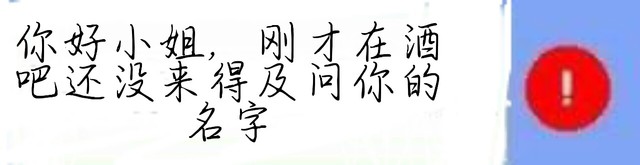 你好小姐，刚才在酒
吧还没来得及问你的
名字
!